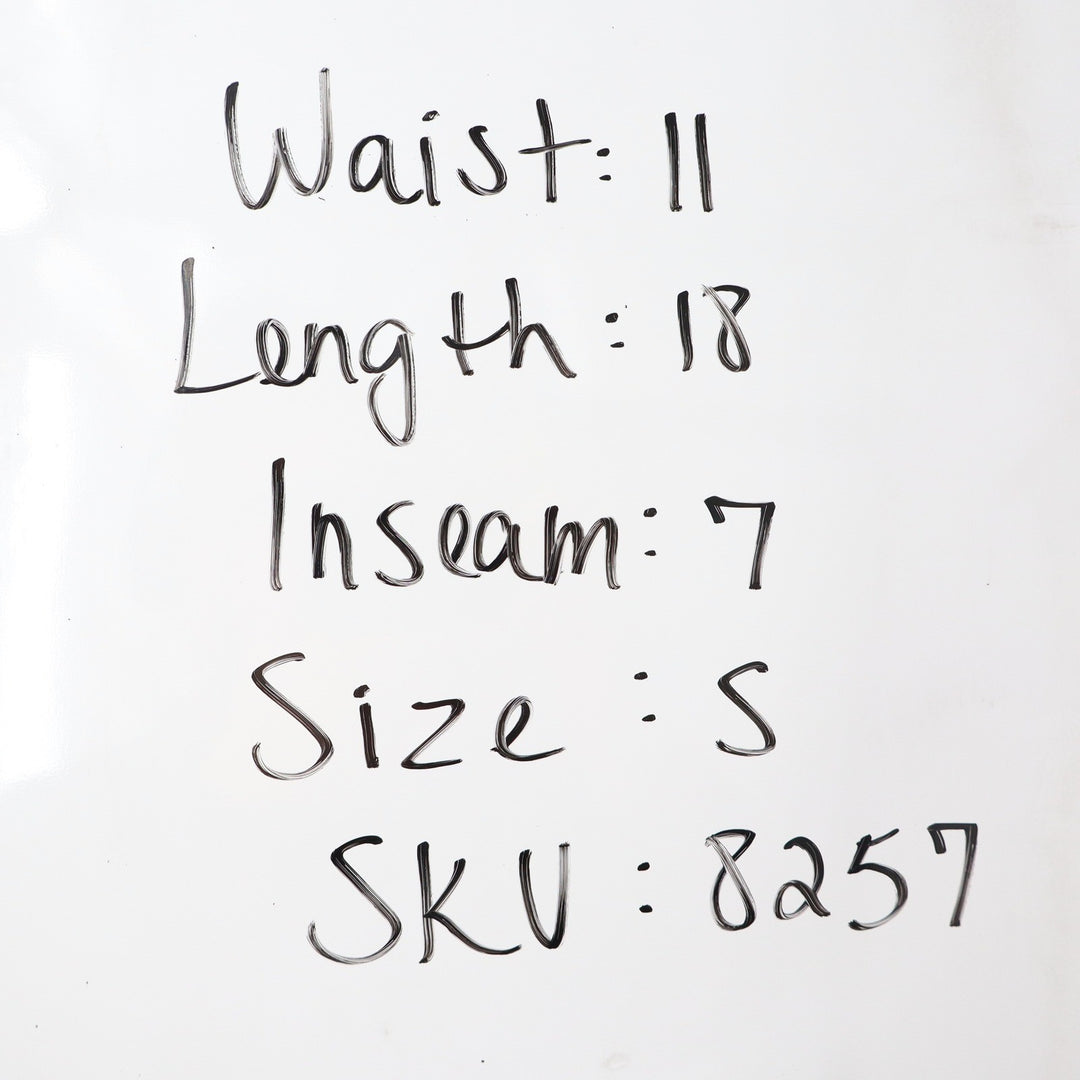 Waist: 11
Length: 18
Inseam: 7
Size: S
SKU: 8257